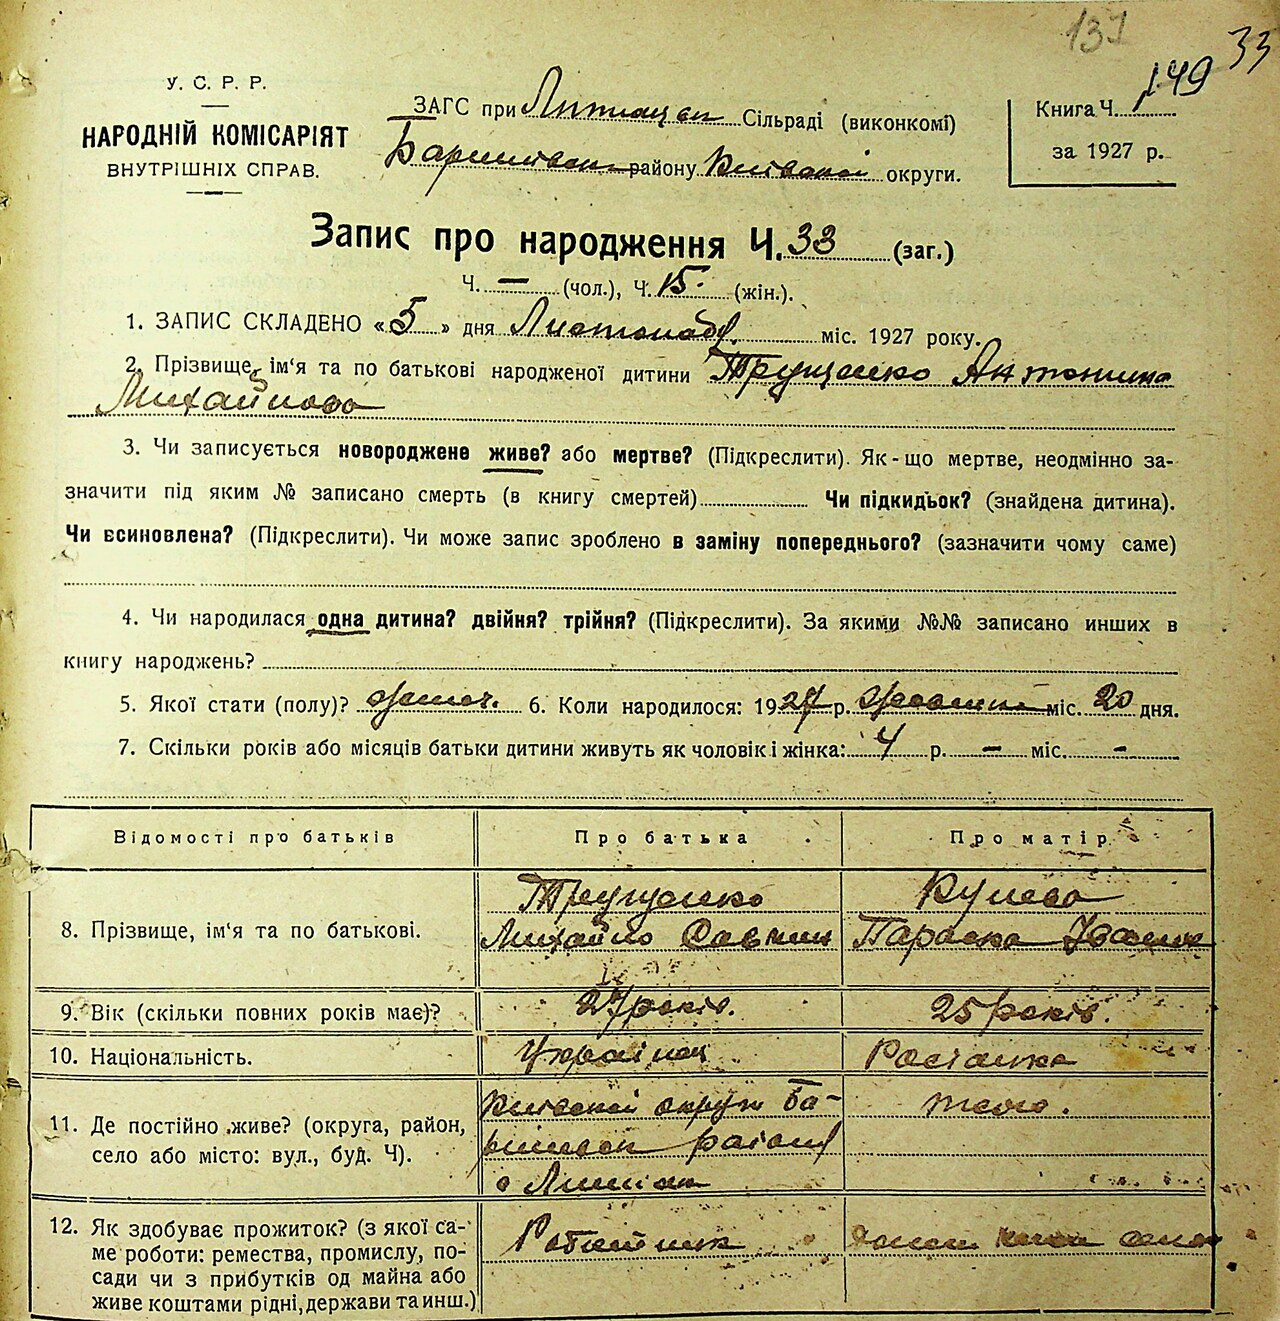 137
149 33
У. С. Р. Р.
НАРОДНІЙ КОМІСАРІЯТ
ВНУТРІШНІХ СПРАВ.
ЗАГС при Сільраді (виконкомі)
району Київської округи.
Книга Ч. 1
за 1927 р.
Запис про народження Ч. 33 (заг.)
Ч. — (чол.), Ч. 15. (жін.).
1. ЗАПИС СКЛАДЕНО «5» дня Листопада міс. 1927 року.
2. Прізвище, ім‘я та по батькові народженої дитини Трущенко Антонина
Михайлова
3. Чи записується новороджене живе? або мертве? (Підкреслити). Як-що мертве, неодмінно за-
значити під яким № записано смерть (в книгу смертей) Чи підкидьок? (знайдена дитина).
Чи всиновлена? (Підкреслити). Чи може запис зроблено в заміну попереднього? (зазначити чому саме)
4. Чи народилася одна дитина? двійня? трійня? (Підкреслити). За якими №№ записано инших в
книгу народжень?
5. Якої стати (полу)? 6. Коли народилося: 1927 р. міс. 20 дня.
7. Скільки років або місяців батьки дитини живуть як чоловік і жінка: 4 р. — міс. —
Відомості про батьків Про батька Про матір
8. Прізвище, ім‘я та по батькові.
Трущенко
Михайло Савкин
Параска
9. Вік (скільки повних років має)? 27 років. 25 років.
10. Національність. Українец Росіянка
11. Де постійно живе? (округа, район,
село або місто: вул., буд. Ч).
Київської округи Ба-
ришівськ району
с
12. Як здобуває прожиток? (з якої са-
ме роботи: ремества, промислу, по-
сади чи з прибутків од майна або
живе коштами рідні, держави та инш.)
Робітник